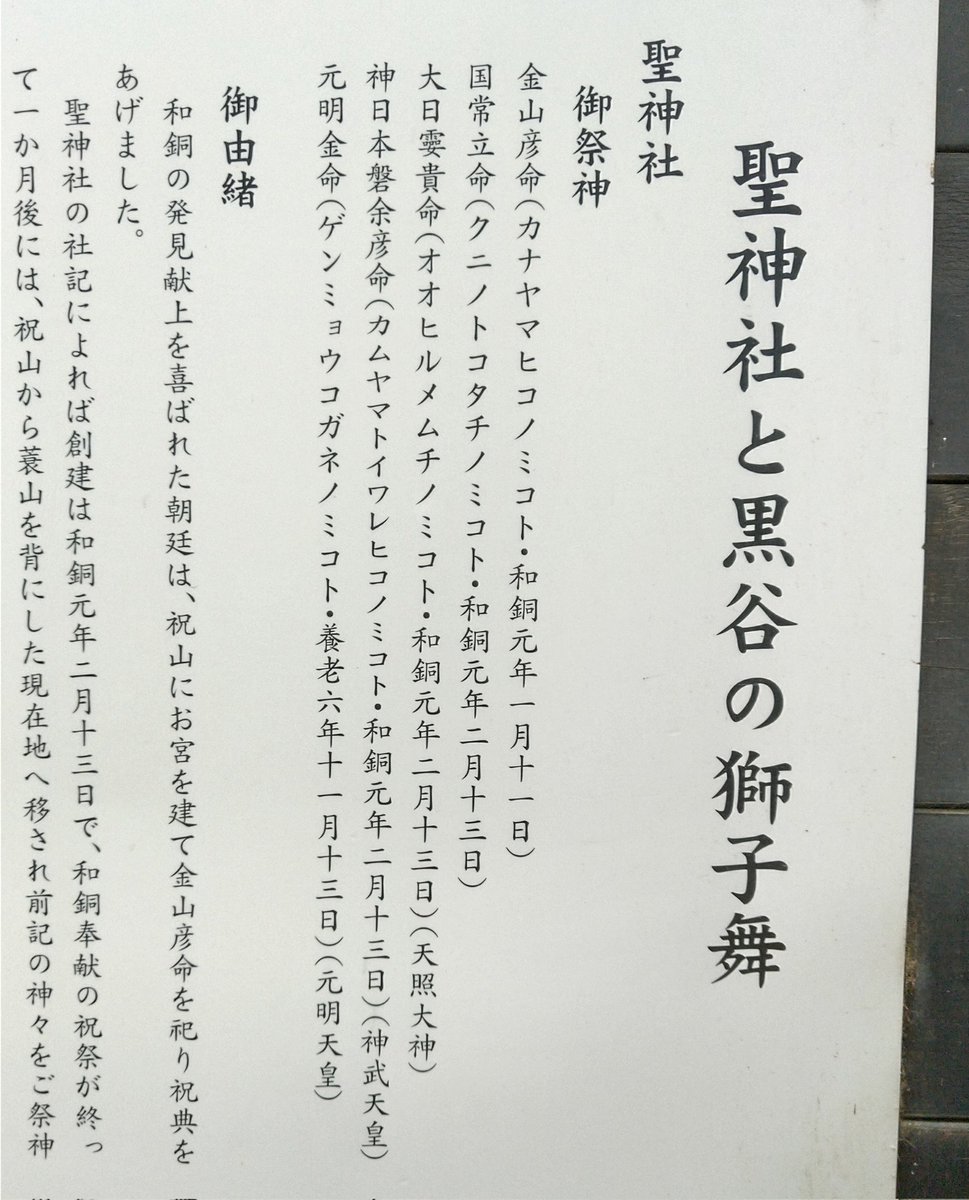 聖神社と黒谷の獅子舞
聖神社
御祭神
金山彦命(カナヤマヒコノミコト・和銅元年一月十一日)
国常立命(クニノトコタチノミコト・和銅元年二月十三日)
大日孁貴命(オオヒルメムチノミコト・和銅元年二月十三日)(天照大神)
神日本磐余彦命(カムヤマトイワレヒコノミコト・和銅元年二月十三日)(神武天皇)
元明金命(ゲンミョウコガネノミコト・養老六年十一月十三日)(元明天皇)
御由緒
和銅の発見献上を喜ばれた朝廷は、祝山にお宮を建て金山彦命を祀り祝典を
あげました。
聖神社の社記によれば創建は和銅元年二月十三日で、和銅奉献の祝祭が終っ
て一か月後には、祝山から蓑山を背にした現在地へ移され前記の神々をご祭神